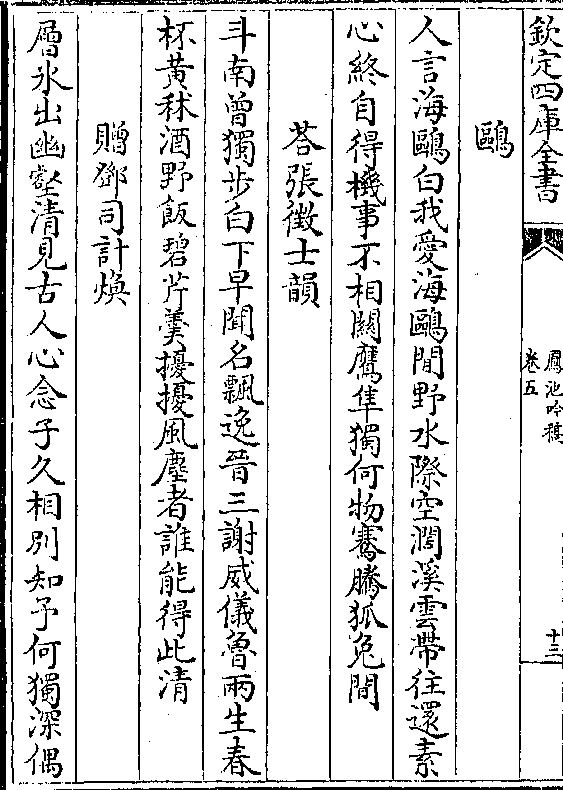 欽定四庫全書
鳳池吟稿
卷五
十三
鷗
人言海鷗白我愛海鷗閒野水際空濶溪雲帶往還素
心終自得機事不相關鷹隼獨何物騫騰狐兔間
荅張徵士韻
斗南曾獨步白下早聞名飄逸晉三謝威儀魯兩生春
杯黄秫酒野飯碧芹羮擾擾風塵者誰能得此清
贈鄧司計煥
層氷出幽壑清見古人心念子久相别知予何獨深偶